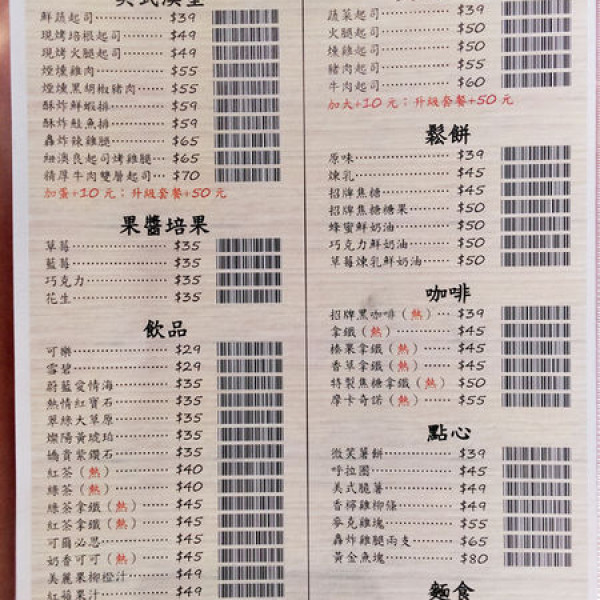 鮮蔬起司 $39
現烤培根起司 $49
現烤火腿起司 $49
煙燻雞肉 $55
煙燻黑胡椒豬肉 $55
酥炸鮮蝦排 $59
酥炸鮭魚排 $59
轟炸辣雞腿 $65
紐澳良起司烤雞腿 $65
精厚牛肉雙層起司 $70
加蛋+10元；升級套餐+50元
果醬培果
草莓 $35
藍莓 $35
巧克力 $35
花生 $35
飲品
可樂 $29
雪碧 $29
蔚藍愛情海 $35
熱情紅寶石 $35
翠綠大草原 $35
燦陽黃琥珀 $35
嬌貴紫鑽石 $35
紅茶（熱） $40
綠茶（熱） $40
綠茶拿鐵（熱） $45
紅茶拿鐵（熱） $45
可爾必思 $45
奶香可可（熱） $45
美麗果柳橙汁 $49
紅蘋果汁 $49
蔬菜起司 $39
火腿起司 $50
燻雞起司 $50
豬肉起司 $55
牛肉起司 $60
加大+10元；升級套餐+50元
鬆餅
原味 $39
煉乳 $45
招牌焦糖 $45
招牌焦糖糖果 $50
蜂蜜鮮奶油 $50
巧克力鮮奶油 $50
草莓煉乳鮮奶油 $50
咖啡
招牌黑咖啡（熱） $39
拿鐵（熱） $45
榛果拿鐵（熱） $45
香草拿鐵（熱） $45
特製焦糖拿鐵（熱） $50
摩卡奇諾（熱） $55
點心
微笑薯餅 $39
呼拉圈 $45
美式脆薯 $49
香檸雞柳條 $49
麥克雞塊 $55
轟炸雞腿兩支 $65
黃金魚塊 $80
麵食